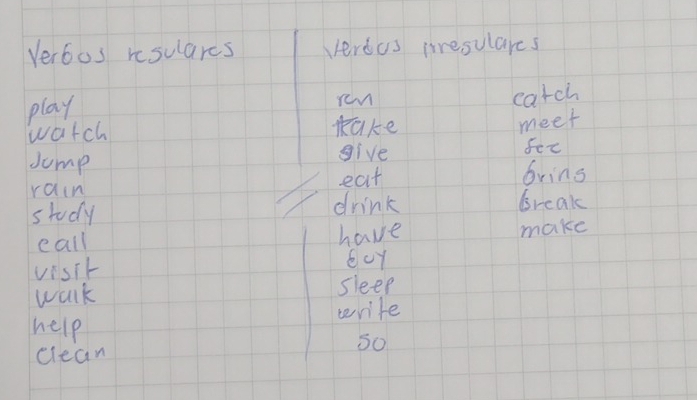 Verbos regulares
play
watch
Jump
rain
study
call
visit
walk
help
clean
Verbos irregulares
run
take
give
eat
drink
have
buy
sleep
write
go
catch
meet
see
bring
break
make